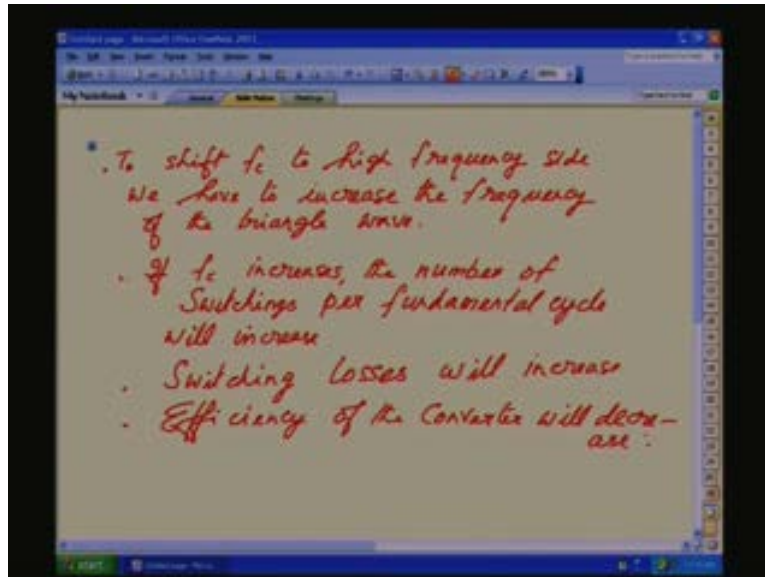 My Notebook
. To shift fc to high frequency side
we have to increase the frequency
of the triangle wave.
. If fc increases, the number of
Switchings per fundamental cycle
will increase
. Switching losses will increase
. Efficiency of the Converter will decre-
ase.